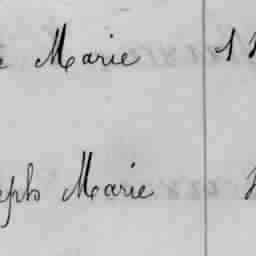 e Marie 1
eph Marie